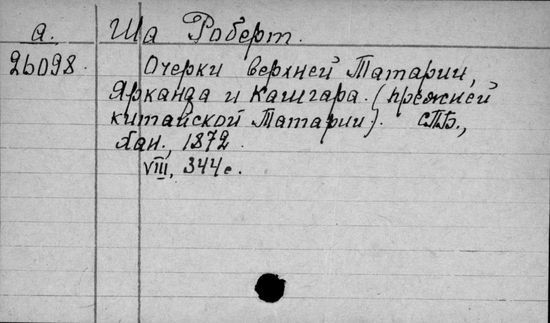 а. Ша Роберт.
26098. Очерки верхней Татарии,
Ярканда и Кашгара. (прежней
китайской Татарии). СПБ.,
Хан, 1872.
VIII, 344с.